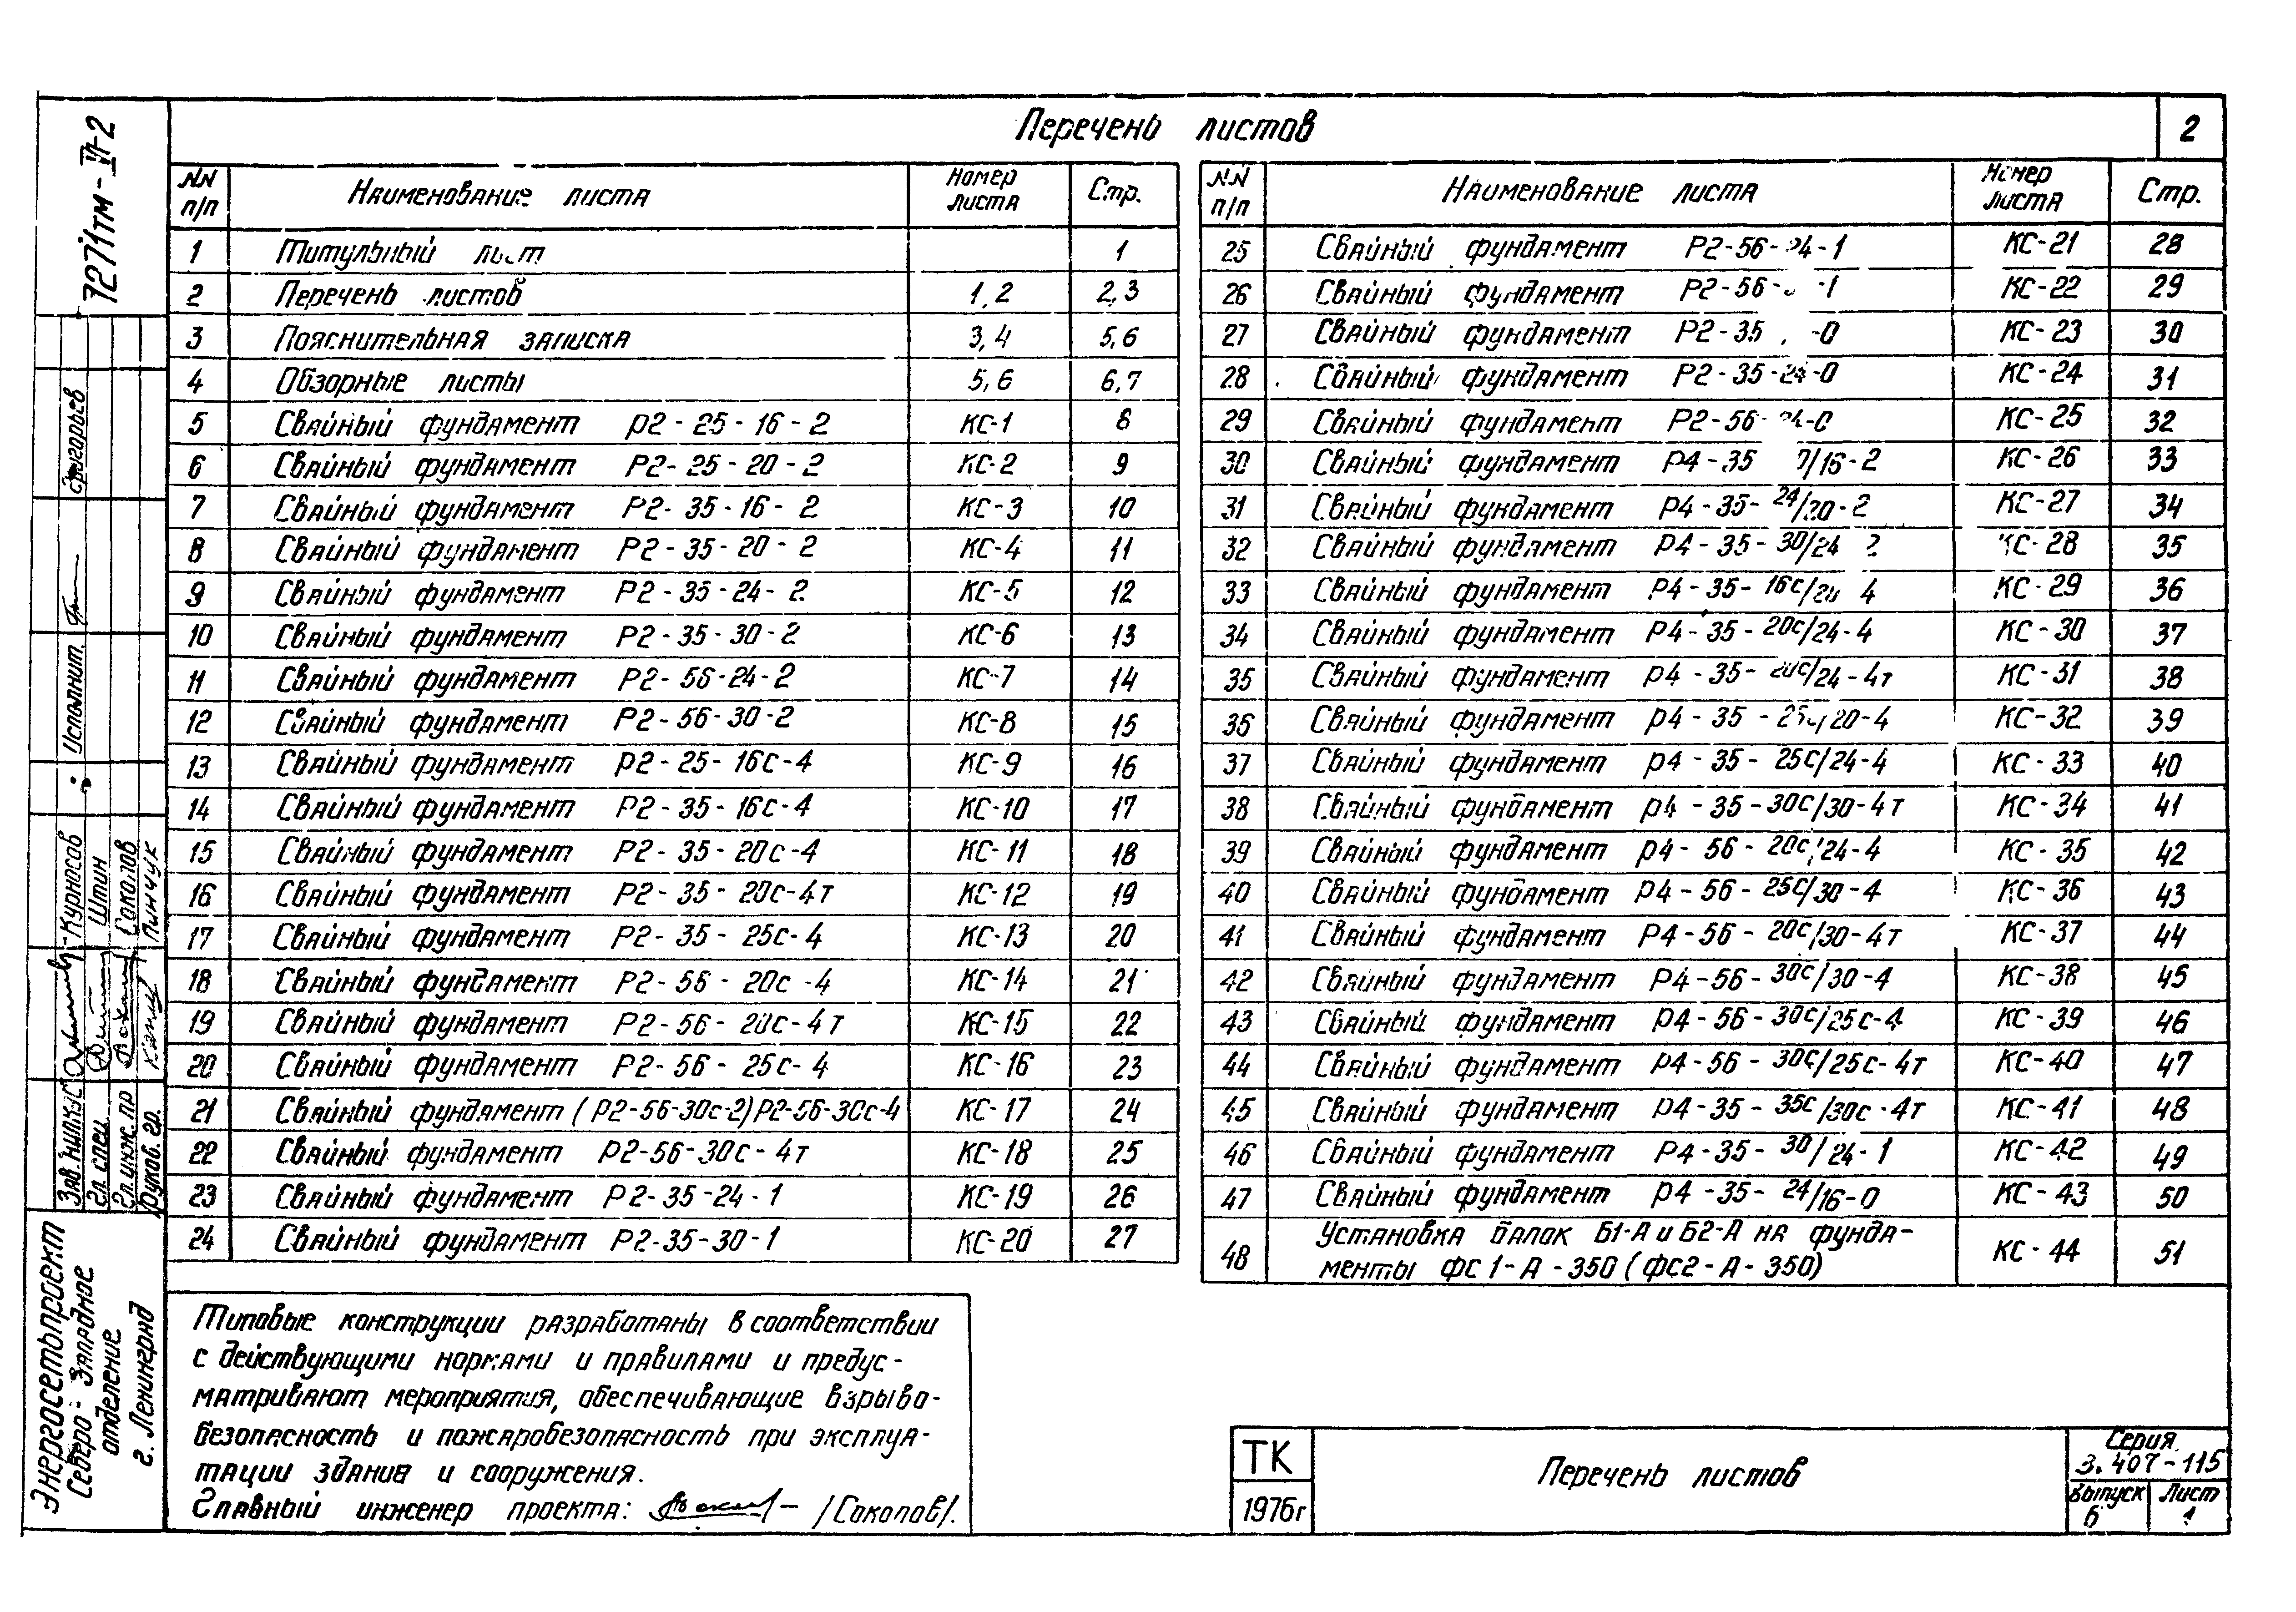 Перечень листов
2
NN п/п Наименование листа Номер листа Стр.
1 Титульный лист 1
2 Перечень листов 1,2 2,3
3 Пояснительная записка 3,4 5,6
4 Обзорные листы 5,6 6,7
5 Свайный фундамент Р2-25-16-2 КС-1 8
6 Свайный фундамент Р2-25-20-2 КС-2 9
7 Свайный фундамент Р2-35-16-2 КС-3 10
8 Свайный фундамент Р2-35-20-2 КС-4 11
9 Свайный фундамент Р2-35-24-2 КС-5 12
10 Свайный фундамент Р2-35-30-2 КС-6 13
11 Свайный фундамент Р2-56-24-2 КС-7 14
12 Свайный фундамент Р2-56-30-2 КС-8 15
13 Свайный фундамент Р2-25-16с-4 КС-9 16
14 Свайный фундамент Р2-35-16с-4 КС-10 17
15 Свайный фундамент Р2-35-20с-4 КС-11 18
16 Свайный фундамент Р2-35-20с-4т КС-12 19
17 Свайный фундамент Р2-35-25с-4 КС-13 20
18 Свайный фундамент Р2-56-20с-4 КС-14 21
19 Свайный фундамент Р2-56-20с-4т КС-15 22
20 Свайный фундамент Р2-56-25с-4 КС-16 23
21 Свайный фундамент (Р2-56-30с-2) Р2-56-30с-4 КС-17 24
22 Свайный фундамент Р2-56-30с-4т КС-18 25
23 Свайный фундамент Р2-35-24-1 КС-19 26
24 Свайный фундамент Р2-35-30-1 КС-20 27
NN п/п Наименование листа Номер листа Стр.
25 Свайный фундамент Р2-56-24-1 КС-21 28
26 Свайный фундамент Р2-56- -1 КС-22 29
27 Свайный фундамент Р2-35 -0 КС-23 30
28 Свайный фундамент Р2-35-24-0 КС-24 31
29 Свайный фундамент Р2-56-24-0 КС-25 32
30 Свайный фундамент Р4-35 /16-2 КС-26 33
31 Свайный фундамент Р4-35-24/20-2 КС-27 34
32 Свайный фундамент Р4-35-30/24 2 КС-28 35
33 Свайный фундамент Р4-35-16с/20 4 КС-29 36
34 Свайный фундамент Р4-35-20с/24-4 КС-30 37
35 Свайный фундамент Р4-35-20с/24-4т КС-31 38
36 Свайный фундамент Р4-35-25с/20-4 КС-32 39
37 Свайный фундамент Р4-35-25с/24-4 КС-33 40
38 Свайный фундамент Р4-35-30с/30-4т КС-34 41
39 Свайный фундамент Р4-56-20с/24-4 КС-35 42
40 Свайный фундамент Р4-56-25с/30-4 КС-36 43
41 Свайный фундамент Р4-56-20с/30-4т КС-37 44
42 Свайный фундамент Р4-56-30с/30-4 КС-38 45
43 Свайный фундамент Р4-56-30с/25с-4 КС-39 46
44 Свайный фундамент Р4-56-30с/25с-4т КС-40 47
45 Свайный фундамент Р4-35-35с/30с-4т КС-41 48
46 Свайный фундамент Р4-35-30/24-1 КС-42 49
47 Свайный фундамент Р4-35-24/16-0 КС-43 50
48 Установка балок Б1-А и Б2-А на фунда-
менты ФС1-А-350 (ФС2-А-350) КС-44 51
Типовые конструкции разработаны в соответствии
с действующими нормами и правилами и предус-
матривают мероприятия, обеспечивающие взрыво-
безопасность и пожаробезопасность при эксплуа-
тации здания и сооружения.
Главный инженер проекта: /Соколов/.
ТК
1976г
Перечень листов
Серия
3.407-115
Выпуск Лист
6 1
7271тм-VI-2
Григорьев
Исполнит.
Курносов
Штин
Соколов
Пинчук
Зав. НИЛКЭС
Гл. спец.
Гл. инж. пр
Руков. гр.
Энергосетьпроект
Северо-Западное
отделение
г. Ленинград